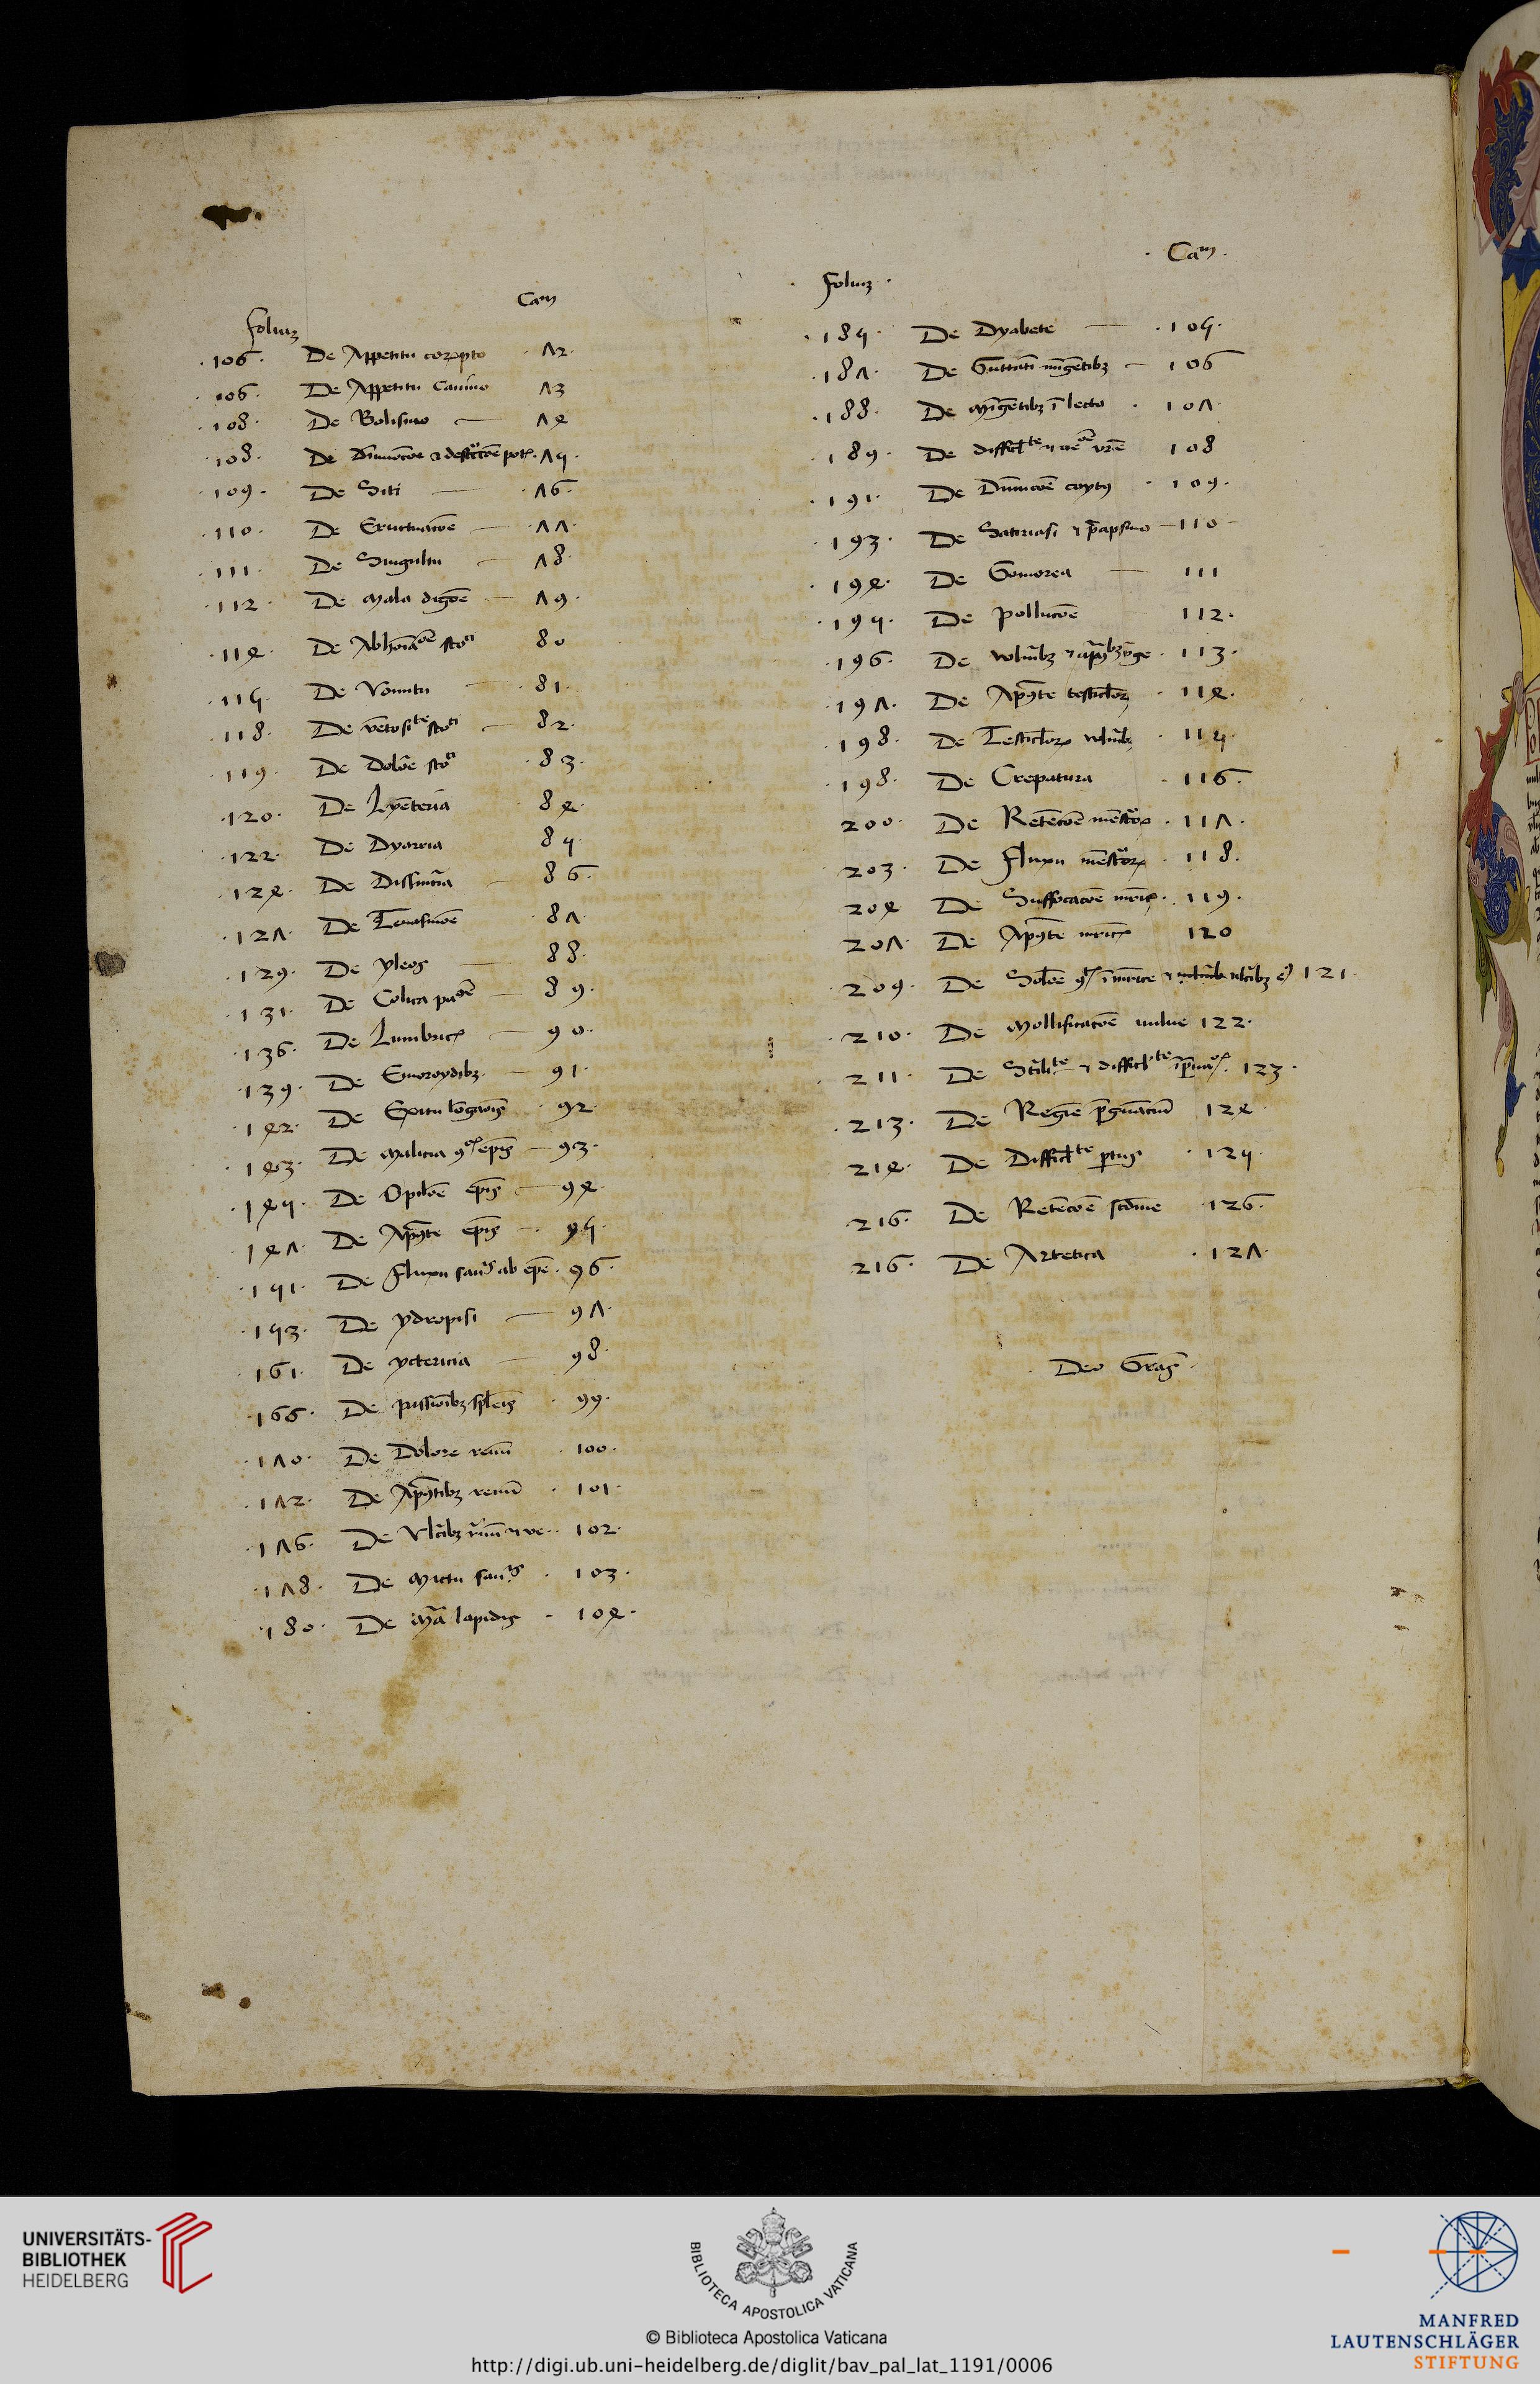 Cam
foliuz
.106. De Appetitu corrupto . 72.
.106. De Appetitu Canino 73
.108. De Bolismo 74
.108. De Diminucõe et destruccõe pot. . 75.
.109. De Siti . 76.
.110. De Eructuacõe . 77.
.111. De Singultu 78.
.112. De Mala digõe 79.
.114. De Abhoiacõe stoci 80
.115. De Vomitu . 81.
.118. De vẽtositate stoci 82.
.119. De Dolõe stoci . 83.
.120. De Lyẽteria 84.
.122. De Dyarria 85
.124. De Dissinteria 86.
.127. De Tenasmõe . 87.
.129. De Yleos 88.
.131. De Colica passiõe 89.
.136. De Lumbricis 90.
.139. De Emoroydibz 91.
.142. De Exitu lõgaoĩs . 92.
.143. De Malicia epĩs 93.
.145. De Opilõe epĩs 94.
.147. De Apõte epĩs 95.
.151. De Fluxu sang ab epẽ . 96.
.153. De Ydropisi 97.
.161. De Yctericia 98.
.166. De passionibz splenis . 99.
.170. De Dolore renũ . 100.
.172. De Apõtibz renũ . 101.
.176. De Vlcibz renũ et ve . 102.
.178. De Mictu sang . 103.
.180. De Mã lapidis . 104.
. Cam .
. foliuz .
.185. De Dyabete . 105.
.187. De Guttati mĩgẽtibz 106
.188. De Mĩgẽtibz ĩ lecto . 107.
.189. De difficltate vrĩe 108
.191. De Dĩnucõe coytus . 109.
.193. De Satiriasi et priapismo 110
.194. De Gomorea 111
.195. De pollucõe 112.
.196. De vulnibz et apatibz vge . 113.
.197. De Apõte testiclorz . 114.
.198. De Testiclorz vlnibz . 115.
.198. De Crepatura . 116.
200. De Retẽcõe mẽstruorz . 117.
203. De Fluxu mẽstruorz . 118.
204 De Suffocacõe mricis . 119.
207. De Apõte mricis 120
.209. De Solõe ĩ mrice 121.
.210. De Mollificacõe vulue 122.
.211. De Sterilitate et difficltate ĩpregnacõis . 123.
.213. De Regĩe p̃gnaciũ 124.
214. De Difficltate partus . 125.
216. De Retẽcõe scdine . 126.
216. De Artetica . 127.
. Deo Gras .
UNIVERSITÄTS-
BIBLIOTHEK
HEIDELBERG
BIBLIOTECA APOSTOLICA VATICANA
© Biblioteca Apostolica Vaticana
http://digi.ub.uni-heidelberg.de/diglit/bav_pal_lat_1191/0006
MANFRED
LAUTENSCHLÄGER
STIFTUNG